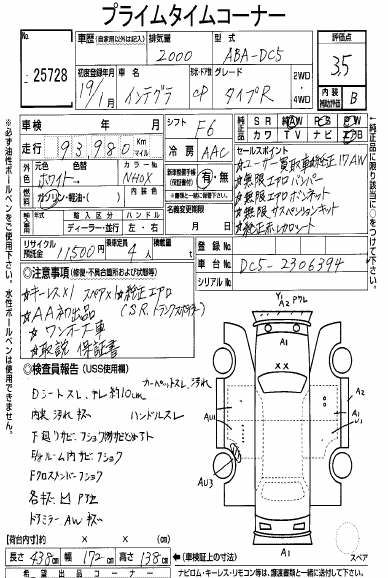 プライムタイムコーナー
No.
25728
車歴(自家用以外は記入)
排気量
2000
型式
ABA-DC5
評価点
3.5
初度登録年月
19/1月
車名
インテグラ
形状・ドア数
CP
グレード
タイプR
2WD
4WD
内装
補助評価
B
車検 年 月
シフト
F6
純正品
SR AW PS PW
カワ TV ナビ エアB
走行
93980
Km
マイル
冷房
AAC
セールスポイント
☆ユーザー買取車純正17AW
☆無限エアロバンパー
☆無限エアロボンネット
☆無限サスペンションキット
☆純正レカロシート
外色
元色
ホワイト→
色替
カラーNo
NH0X
新車整備手帳
(保証書付)
有・無
燃料
ガソリン・軽油・( )
内装色
輸入車
年式
輸入区分
ハンドル
ディーラー・並行
左・右
名義変更期限
月 日
リサイクル
預託金
11500円
乗車定員
4人
積載量
t
登録No.
車台No.
DC5-2306394
シリアルNo.
◎注意事項(修復・不具合箇所および状態等)
☆キーレス×1 スペア×1 ☆純正エアロ
☆AA初出品 (S.R. トランクスポイラー)
☆ワンオーナー車
☆取説 保証書
◎検査員報告(USS使用欄)
Dシートスレ、テレ約10cm
カーペットスレ、汚れ
内装汚れ キズ ハンドルスレ
下廻りサビ
ドアミラー AWキズ
Y1 A2 Pクレ
A1
XX
AU1
AU3
A2
A1
U1
A1
スペア
【荷台内寸】 × × (cm)
長さ 438cm 幅 172cm 高さ 138cm
←(車検証上の寸法)
希望出品コーナー
ナビロム・キーレス・リモコン等は、譲渡書類と一緒に送付して下さい。
※必ず油性ボールペンをご使用下さい。水性ボールペンは使用できません。
純正品に限り該当に○をつけて下さい。